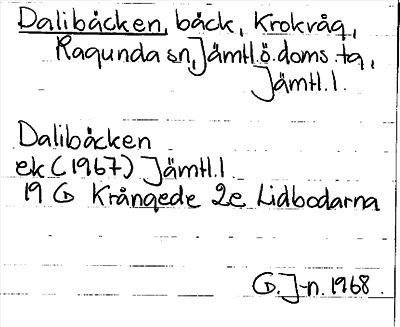 Dalibäcken, bäck, Krokvåg,
Ragunda sn, Jämtl.ö.doms.tg,
Jämtl.l.
Dalibäcken
ek (1967) Jämtl.l
19 G Krångede 2e Lidbodarna
G. J-n. 1968.